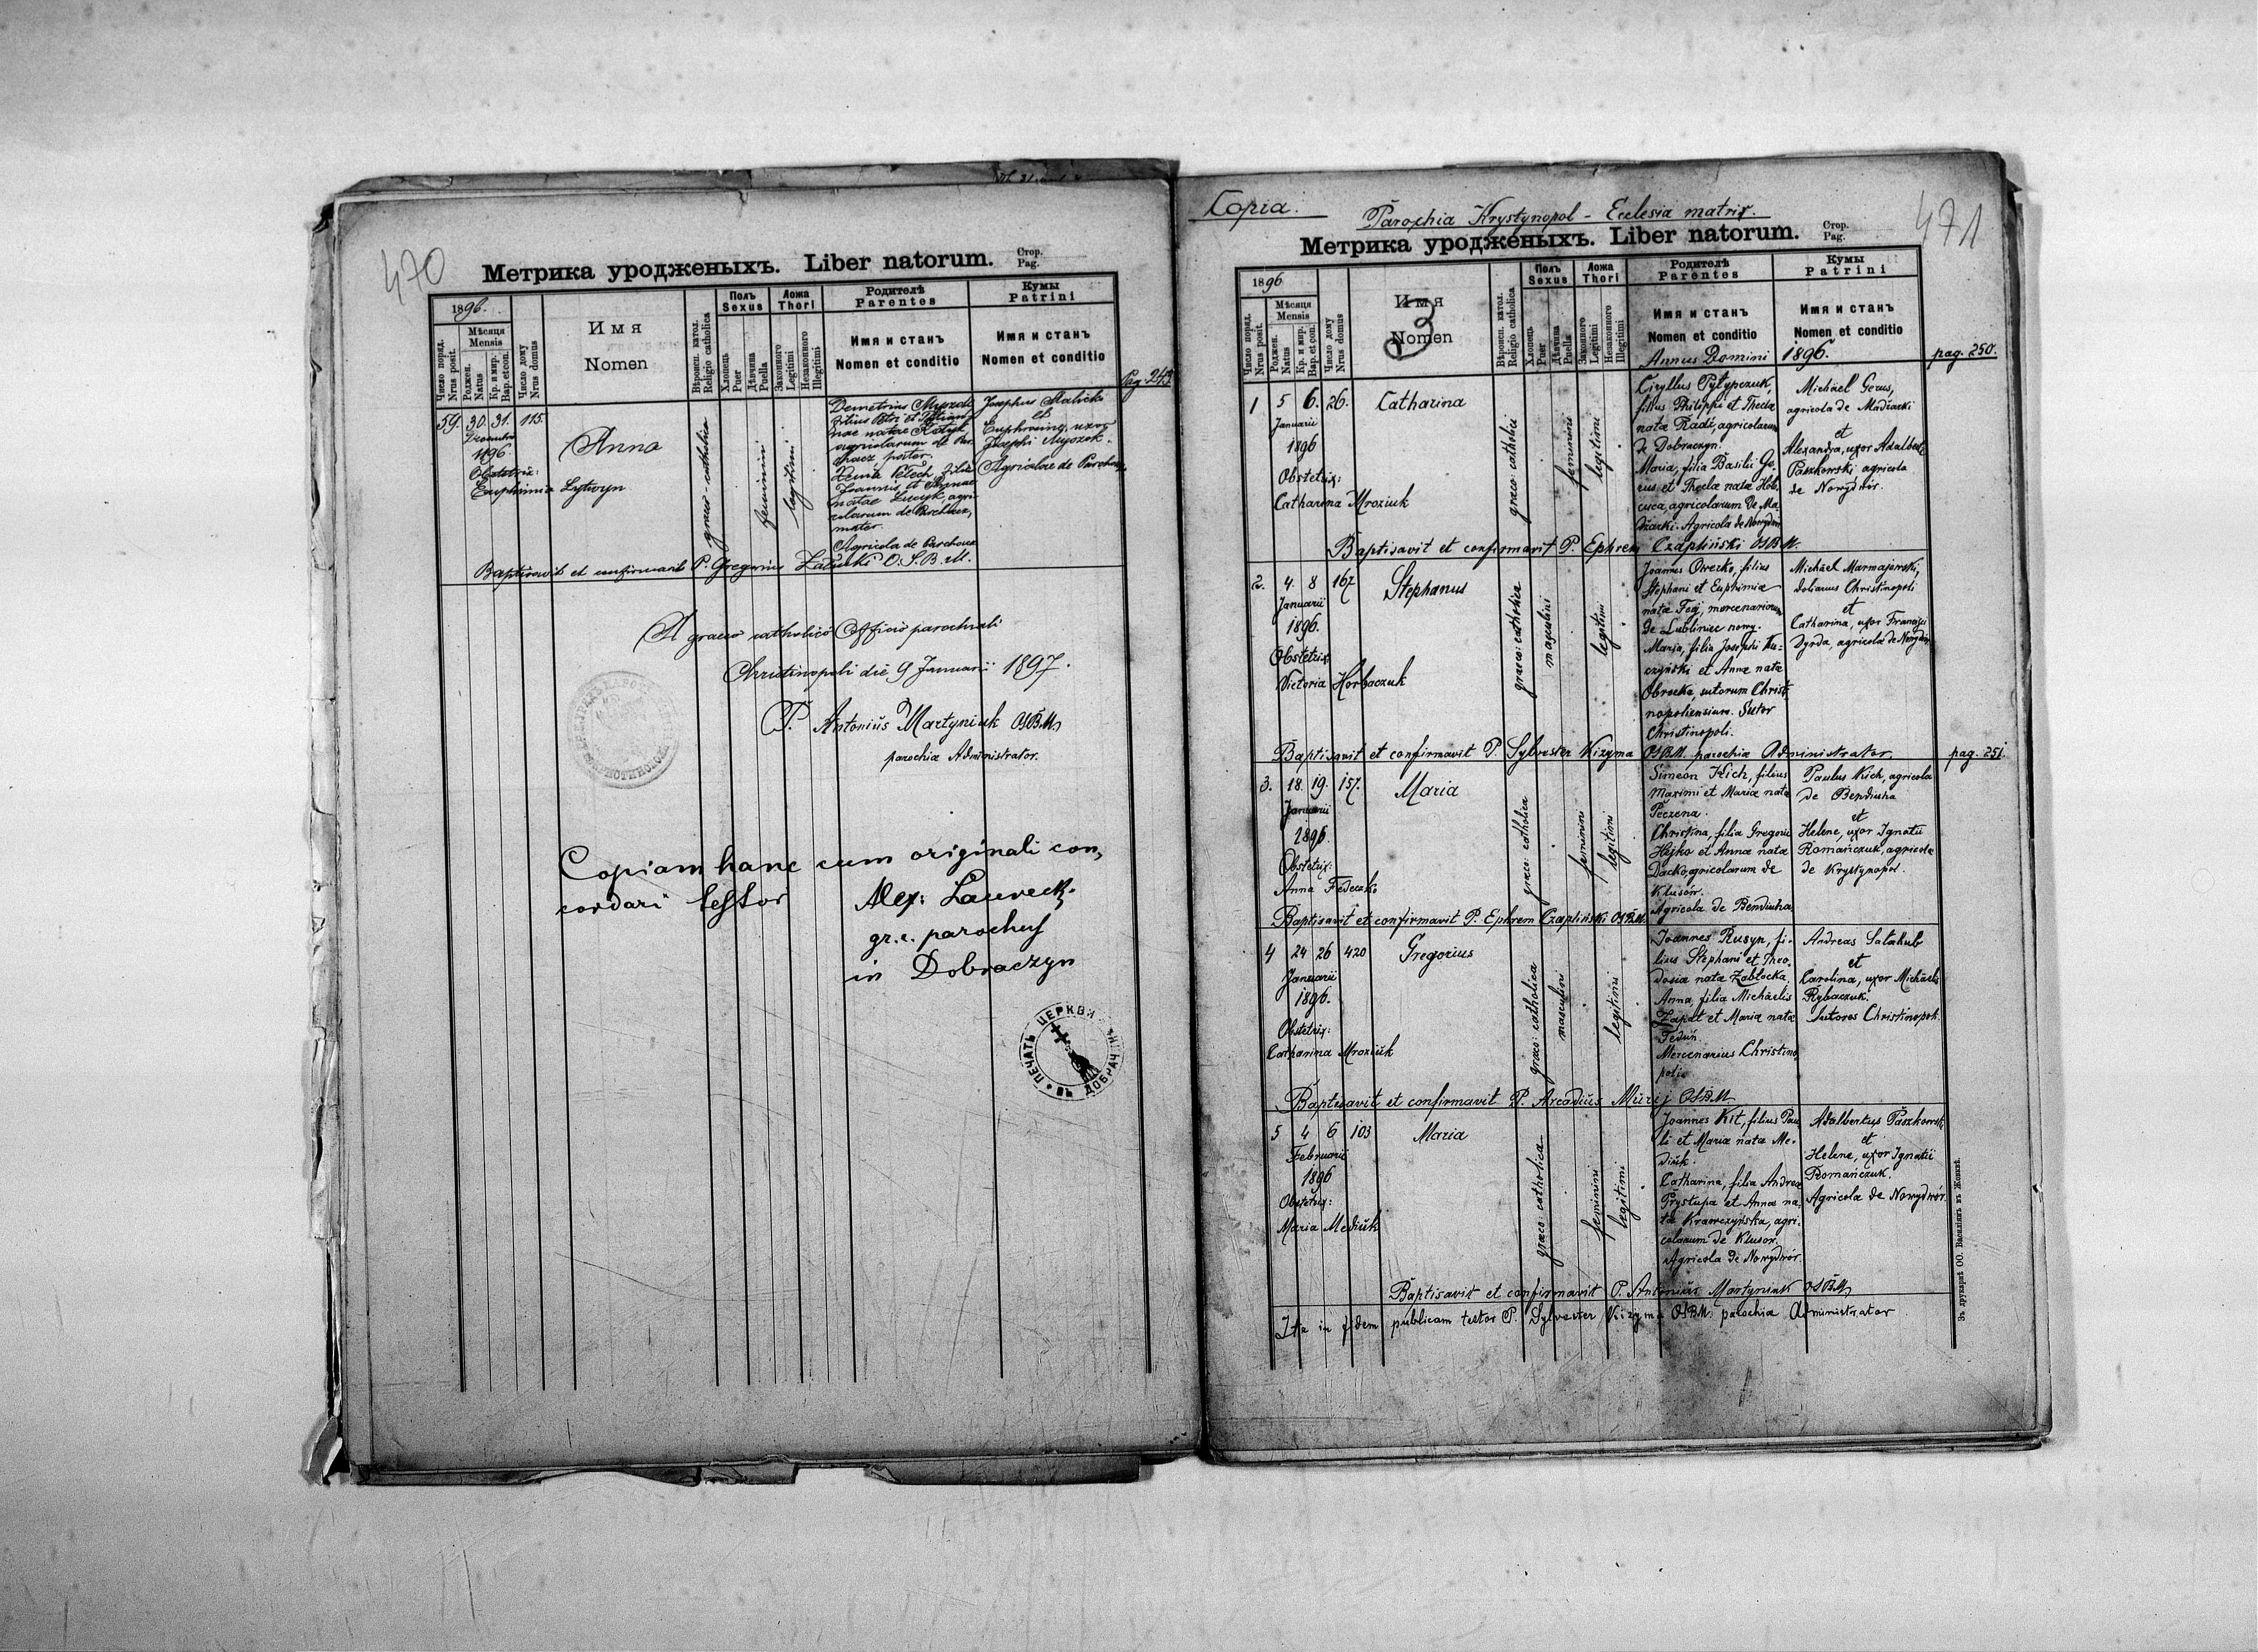 470
Метрика уродженыхъ. Liber natorum.
Стор.
Pag.
1896.
Число поряд.
Nrus posit.
Мѣсяця
Mensis
Роджен.
Natus
Кр. и мир.
Bap. et con.
Число дому
Nrus domus
Имя
Nomen
Вѣроисп. катол.
Religio catholica
Полъ
Sexus
Хлопець
Puer
Дѣвчина
Puella
Ложа
Thori
Законного
Legitimi
Незаконного
Illegitimi
Родителѣ
Parentes
Имя и станъ
Nomen et conditio
Кумы
Patrini
Имя и станъ
Nomen et conditio
Pag. 243
59. 30. 31. 115.
Decembris
1896
Obstetrix:
Euphimia Lytwyn
Anna
graeco-catholica
feminini
legitimi
Demetrius
filius Petri et
nae natae
agricolarum de Par-
chacz pater.
filia
Joannis et Annae
natae Lucyk, agri-
colarum de Parchacz,
mater.
Agricola de Parchacz
Josephus Stalicki
et
Euphrosina, uxor
Josephi
Agricolae de Parchacz
Baptisavit et confirmavit P. Gregorius O.S.B.M.
A graeco catholico Officio parochiali
Christinopoli die 9 Januarii 1897.
P. Antonius Martyniuk OSBM,
parochiae Administrator.
Copiam hanc cum originali con,
cordari testor
Alex: Laureck.
gr. c. parochus
in Dobraczyn
ПЕЧАТЬ ЦЕРКВИ
ВЪ ДОБРАЧИН
471
Copia.
Parochia Krystynopol - Ecclesia matrix.
Метрика уродженыхъ. Liber natorum.
Стор.
Pag.
1896
Число поряд.
Nrus posit.
Мѣсяця
Mensis
Роджен.
Natus
Кр. и мир.
Bap. et con.
Число дому
Nrus domus
Имя
Nomen
3
Вѣроисп. катол.
Religio catholica
Полъ
Sexus
Хлопець
Puer
Дѣвчина
Puella
Ложа
Thori
Законного
Legitimi
Незаконного
Illegitimi
Родителѣ
Parentes
Имя и станъ
Nomen et conditio
Кумы
Patrini
Имя и станъ
Nomen et conditio
Annus Domini 1896.
pag. 250.
1 5 6. 26. Catharina
Januarii
1896
Obstetrix:
Catharina Mroziuk
graeco: catholica
feminini
legitimi
Ciryllus Pylypczuk,
filius Philippi et Theclae
natae Radi, agricolarum
de Dobraczyn.
Maria, filia Basilii Ge-
rus et Theclae natae Hob.
cuca, agricolarum de Ma
dżarki. Agricola de Nowydwór
Michael Gerus,
agricola de Madiarki
et
Alexandra, uxor Adalberti
Paszkowski agricola
de Nowydwór.
Baptisavit et confirmavit P. Ephrem Czapliński OSBM.
2. 4. 8 167 Stephanus
Januarii
1896.
Obstetrix:
Victoria Horbaczuk
graeco: catholica
masculini
legitimi
Joannes Owerko, filius
Stephani et Euphimiae
natae Tej, mercenariorum
de Lubliniec nowy.
Maria, filia Josephi Ku-
czyński et Annae natae
Obrocka, sutorum Christi-
nopoliensium. Sutor
Christinopoli.
Michael Marmajewski,
doliarius Christinopoli
et
Catharina, uxor Francisci
Dyrda, agricola de Nowydwór
Baptisavit et confirmavit P. Sylvester Kizyma OSBM. parochiae Administrator.
pag. 251.
3. 18. 19. 157. Maria
Januarii
1896.
Obstetrix:
Anna Fedeczko
graeco: catholica
feminini
legitimi
Simeon Kich, filius
Maximi et Mariae natae
Peczena.
Christina, filia Gregorii
Hejko et Annae natae
Dacko, agricolarum de
Klusów.
Agricola de Bendiuha
Paulus Kich, agricola
de Bendiuha
et
Helene, uxor Ignatii
Romańczuk, agricola
de Krystynopol.
Baptisavit et confirmavit P. Ephrem Czapliński OSBM.
4 24 26 420 Gregorius
Januarii
1896.
Obstetrix:
Catharina Mroziuk
graeco: catholica
masculini
legitimi
Joannes Rusyn, fi-
lius Stephani et Theo-
dosiae natae Zabłocka.
Anna, filia Michaelis
Zapat et Mariae natae
Feduń.
Mercenarius Christino
poli.
Andreas Salahub
et
Carolina, uxor Michaelis
Rybaczuk.
Sutores Christinopoli.
Baptisavit et confirmavit P. Arcadius OSBM.
5 4 6 103 Maria
Februarii
1896
Obstetrix:
Maria Mediuk
graeco: catholica
feminini
legitimi
Joannes Kit, filius Pau
li et Mariae natae Me-
diuk.
Catharina, filia Andreae
Prystupa et Annae na-
tae Krawczyńska, agri-
colarum de Klusów.
Agricola de Nowydwór.
Adalbertus Paszkowski
et
Helene, uxor Ignatii
Romańczuk.
Agricolae de Nowydwór.
Baptisavit et confirmavit P. Antonius Martyniuk OSBM,
Ita in fidem publicam testor P. Sylvester Kizyma OSBM. parochiae Administrator
Зъ друкарнѣ ОО. Василіянъ въ Жовквѣ.